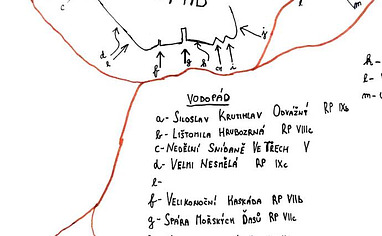 c
d
e
f
g
h
i
j
k
l
m
h -
l -
m -
VODOPÁD
a - SILOSLAV KRUTIHLAV ODVÁŽNÝ RP IXb
b - LIŠTOMILA HRUBOZRNÁ RP VIIIc
c - NEDĚLNÍ SNÍDANĚ VE TŘECH V
d - VELMI NESMĚLÁ RP IXc
e -
f - VELIKONOČNÍ KASKÁDA RP VIIb
g - SPÁRA MOŘSKÝCH ĎASŮ RP VIIc